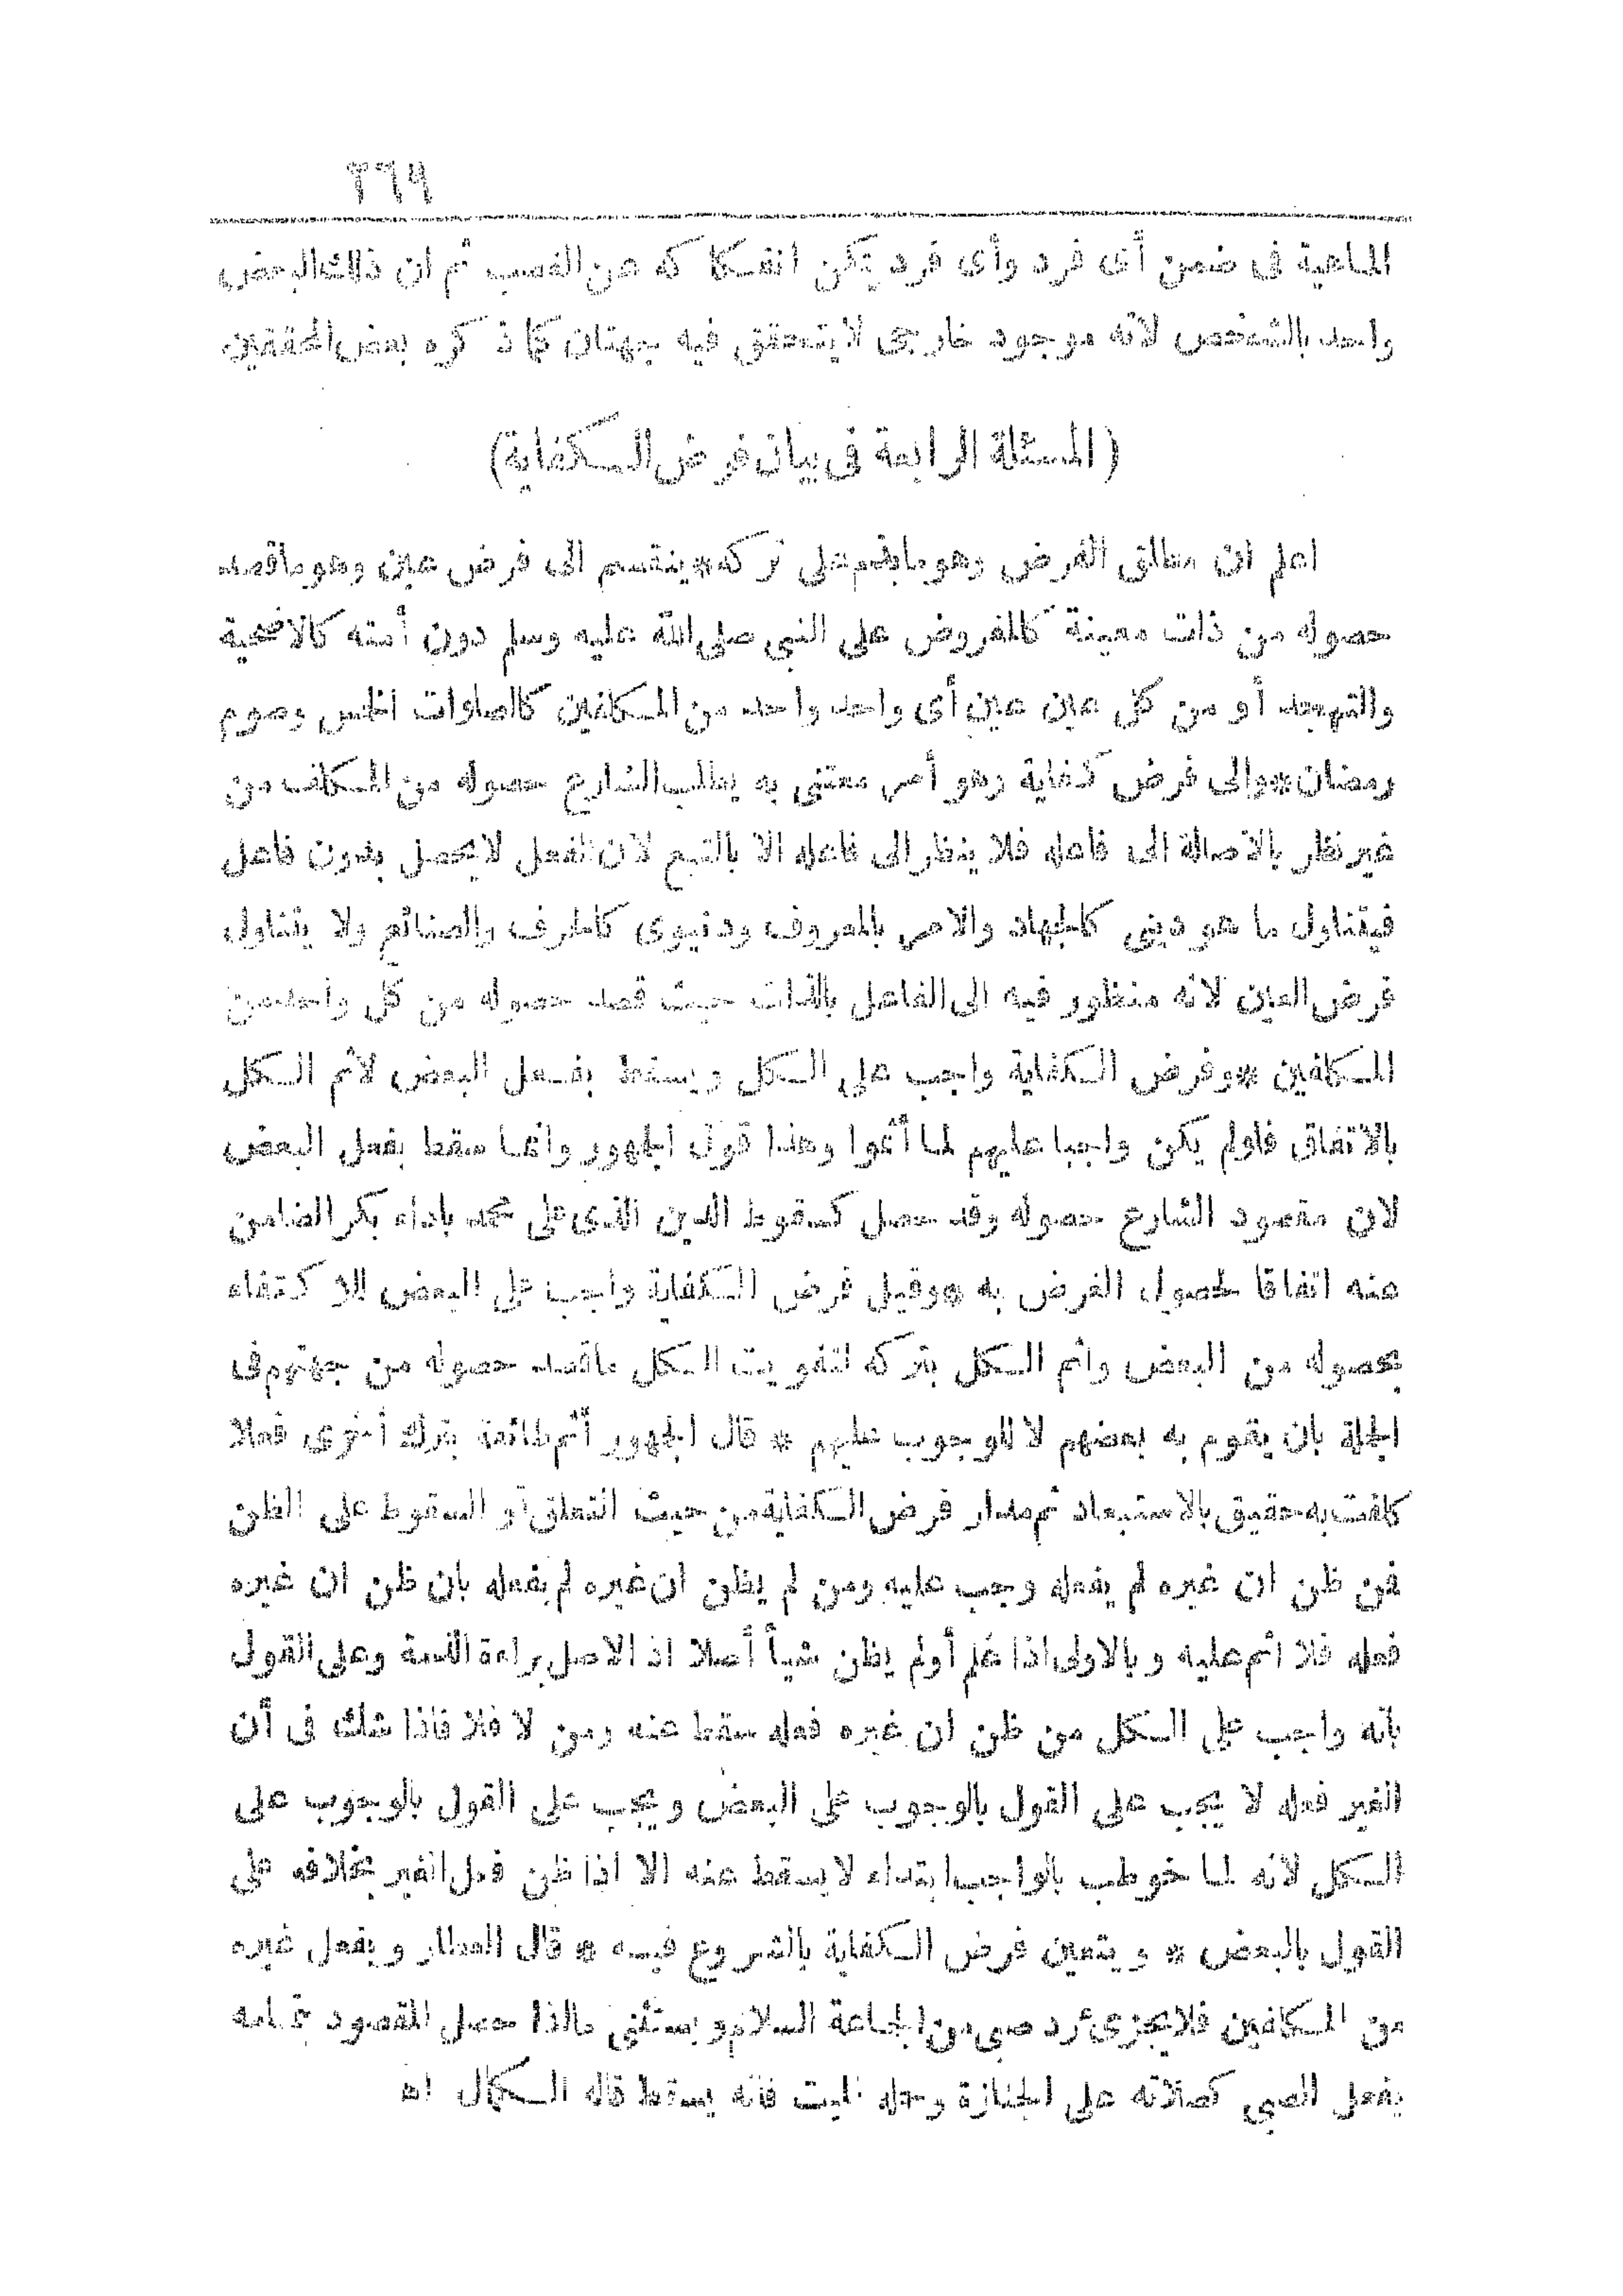 ٢٦٩
الماهية فى ضمن أى فرد وأى فرد يمكن انفكاكه عن الغصب ثم ان ذلك البعض
واحد بالشخص لانه موجود خارجى لا يتحقق فيه جهتان كما ذكره بعض المحققين
(المسئلة الرابعة فى بيان فرض الكفاية)
اعلم ان مطلق الفرض وهو ما يذم على تركه * ينقسم الى فرض عين وهو ما قصد
حصوله من ذات معينة كالمفروض على النبى صلى الله عليه وسلم دون أمته كالاضحية
والتهجد أو من كل عين عين أى واحد واحد من المكلفين كالصلوات الخمس وصوم
رمضان * والى فرض كفاية وهو أمر معتنى به يطلب الشارع حصوله من المكلف من
غير نظر بالاصالة الى فاعله فلا ينظر الى فاعله الا بالتبع لان الفعل لا يحصل بدون فاعل
فيتناول ما هو دينى كالجهاد والامر بالمعروف ودنيوى كالحرف والصنائع ولا يتناول
فرض العين لانه منظور فيه الى الفاعل بالذات حيث قصد حصوله من كل واحد من
المكلفين * وفرض الكفاية واجب على الكل ويسقط بفعل البعض لاثم الكل
بالاتفاق فلو لم يكن واجبا عليهم لما أثموا وهذا قول الجمهور وانما سقط بفعل البعض
لان مقصود الشارع حصوله وقد حصل كسقوط الدين الذى على محمد باداء بكر الضامن
عنه اتفاقا لحصول الغرض به * وقيل فرض الكفاية واجب على البعض للاكتفاء
بحصوله من البعض واثم الكل بتركه لتفويت الكل ما قصد حصوله من جهتهم فى
الجملة بان يقوم به بعضهم لا للوجوب عليهم * قال الجمهور أثم طائفة بترك أخرى فعلا
كلفت به حقيق بالاستبعاد ثم مدار فرض الكفاية من حيث التعلق أو السقوط على الظن
فمن ظن ان غيره لم يفعله وجب عليه ومن لم يظن ان غيره لم يفعله بان ظن ان غيره
فعله فلا اثم عليه وبالاولى اذا علم أولم يظن شيأ أصلا اذ الاصل براءة الذمة وعلى القول
بانه واجب على الكل من ظن ان غيره فعله سقط عنه ومن لا فلا فاذا شك فى أن
الغير فعله لا يجب على القول بالوجوب على البعض ويجب على القول بالوجوب على
الكل لانه لما خوطب بالواجب ابتداء لا يسقط عنه الا اذا ظن فعل الغير بخلافه على
القول بالبعض * ويتعين فرض الكفاية بالشروع فيه * قال العطار وبفعل غيره
من المكلفين فلا يجزئ رد صبى من الجماعة السلام ويستثنى ما اذا حصل المقصود بتمامه
بفعل الصبى كصلاته على الجنازة وحمله الميت فانه يسقط قاله الكمال اه